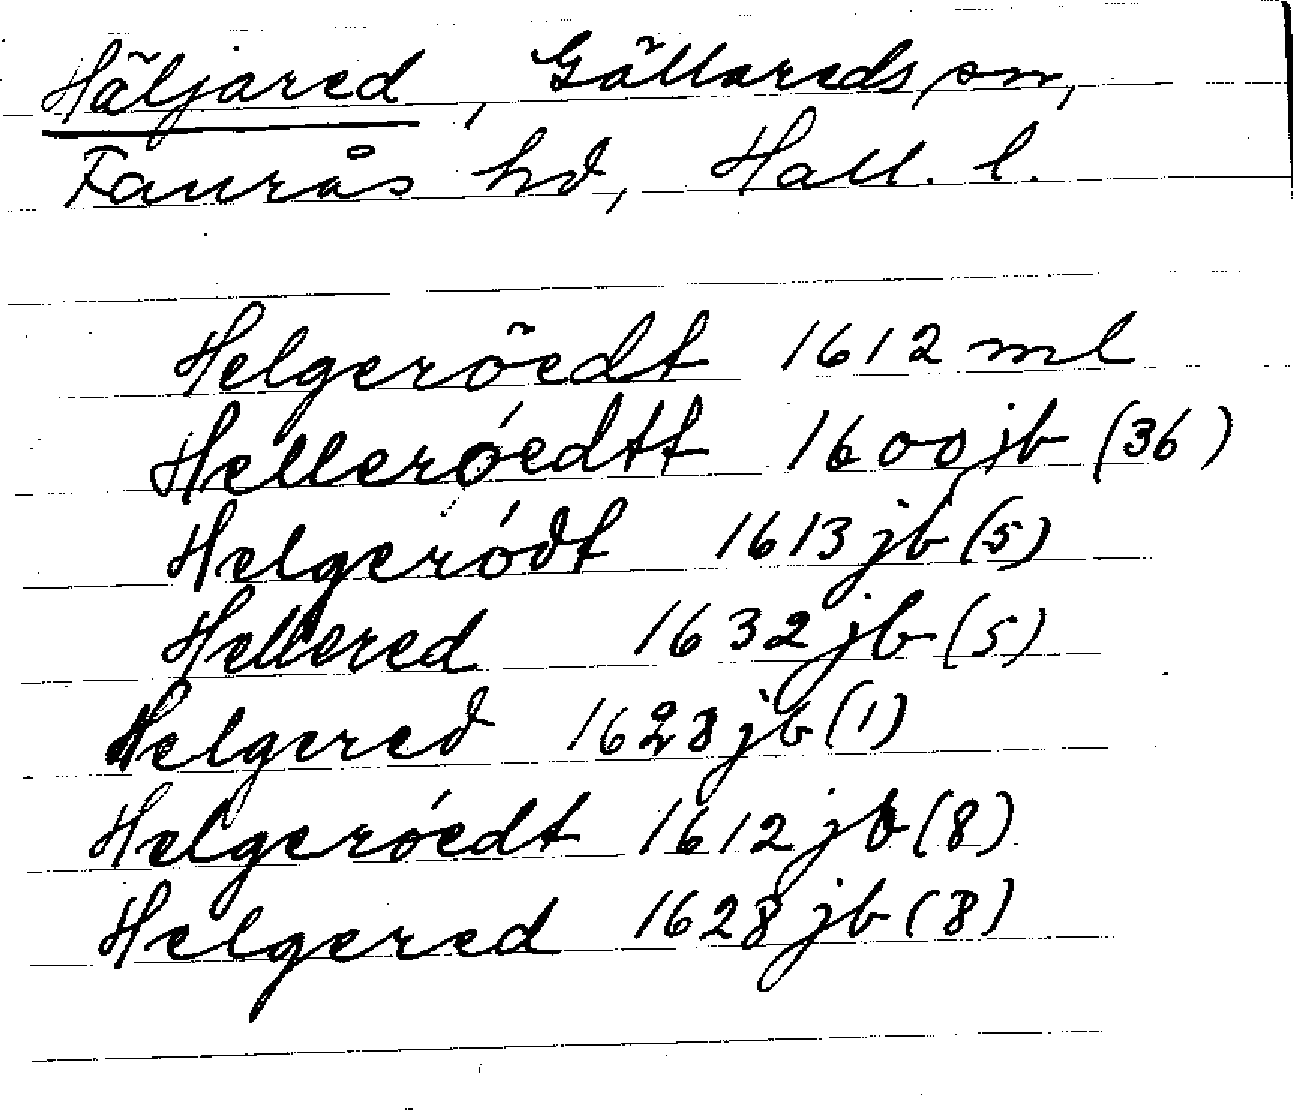 Häljared, Gällareds sn,
Faurås hd, Hall. l.
Helgeröedt 1612 ml
Helleróedtt 1600 jb (36)
Helgeródt 1613 jb (5)
Hellered 1632 jb (5)
Helgered 1628 jb (1)
Helgeróedt 1612 jb (8)
Helgered 1628 jb (8)